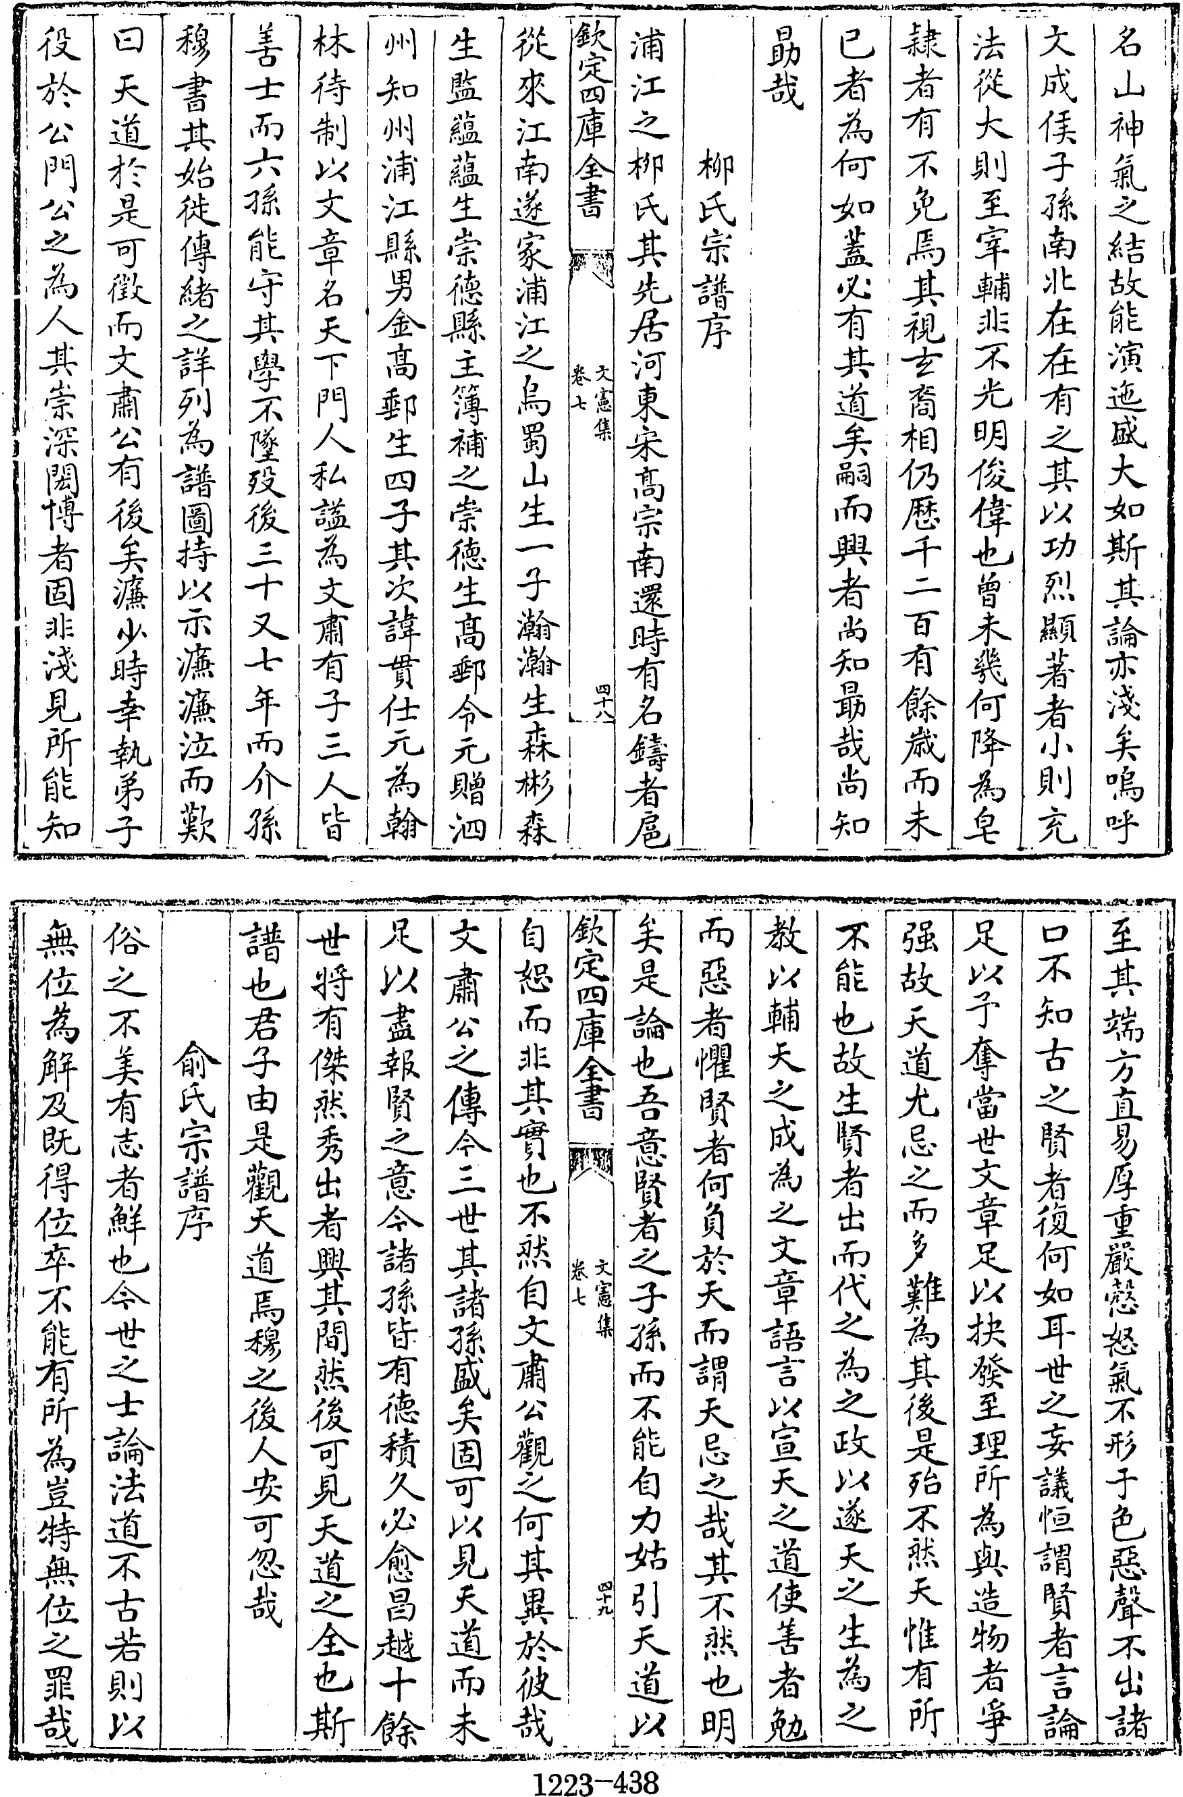 名山神氣之結故能演迤盛大如斯其論亦淺矣嗚呼
文成侯子孫南北在在有之其以功烈顯著者小則充
法從大則至宰輔非不光明俊偉也曾未幾何降為皂
隸者有不免焉其視玄裔相仍歷千二百有餘歲而未
已者為何如蓋必有其道矣嗣而興者尚知勗哉尚知
勗哉
柳氏宗譜序
浦江之柳氏其先居河東宋高宗南還時有名鑄者扈
欽定四庫全書
文憲集
卷七
四十八
從來江南遂家浦江之烏蜀山生一子瀚瀚生森彬森
生監蘊蘊生崇德縣主簿補之崇德生高郵令元贈泗
州知州浦江縣男金高郵生四子其次諱貫仕元為翰
林待制以文章名天下門人私諡為文肅有子三人皆
善士而六孫能守其學不墜歿後三十又七年而介孫
穆書其始徙傳緒之詳列為譜圖持以示濂濂泣而歎
曰天道於是可徵而文肅公有後矣濂少時幸執弟子
役於公門公之為人其崇深閎博者固非淺見所能知
至其端方直易厚重嚴愨怒氣不形于色惡聲不出諸
口不知古之賢者復何如耳世之妄議恒謂賢者言論
足以予奪當世文章足以抉發至理所為與造物者爭
强故天道尤忌之而多難為其後是殆不然天惟有所
不能也故生賢者出而代之為之政以遂天之生為之
教以輔天之成為之文章語言以宣天之道使善者勉
而惡者懼賢者何負於天而謂天忌之哉其不然也明
矣是論也吾意賢者之子孫而不能自力姑引天道以
欽定四庫全書
文憲集
卷七
四十九
自恕而非其實也不然自文肅公觀之何其異於彼哉
文肅公之傳今三世其諸孫盛矣固可以見天道而未
足以盡報賢之意今諸孫皆有德積久必愈昌越十餘
世將有傑然秀出者興其間然後可見天道之全也斯
譜也君子由是觀天道焉穆之後人安可忽哉
俞氏宗譜序
俗之不美有志者鮮也今世之士論法道不古若則以
無位為解及既得位卒不能有所為豈特無位之罪哉
1223-438